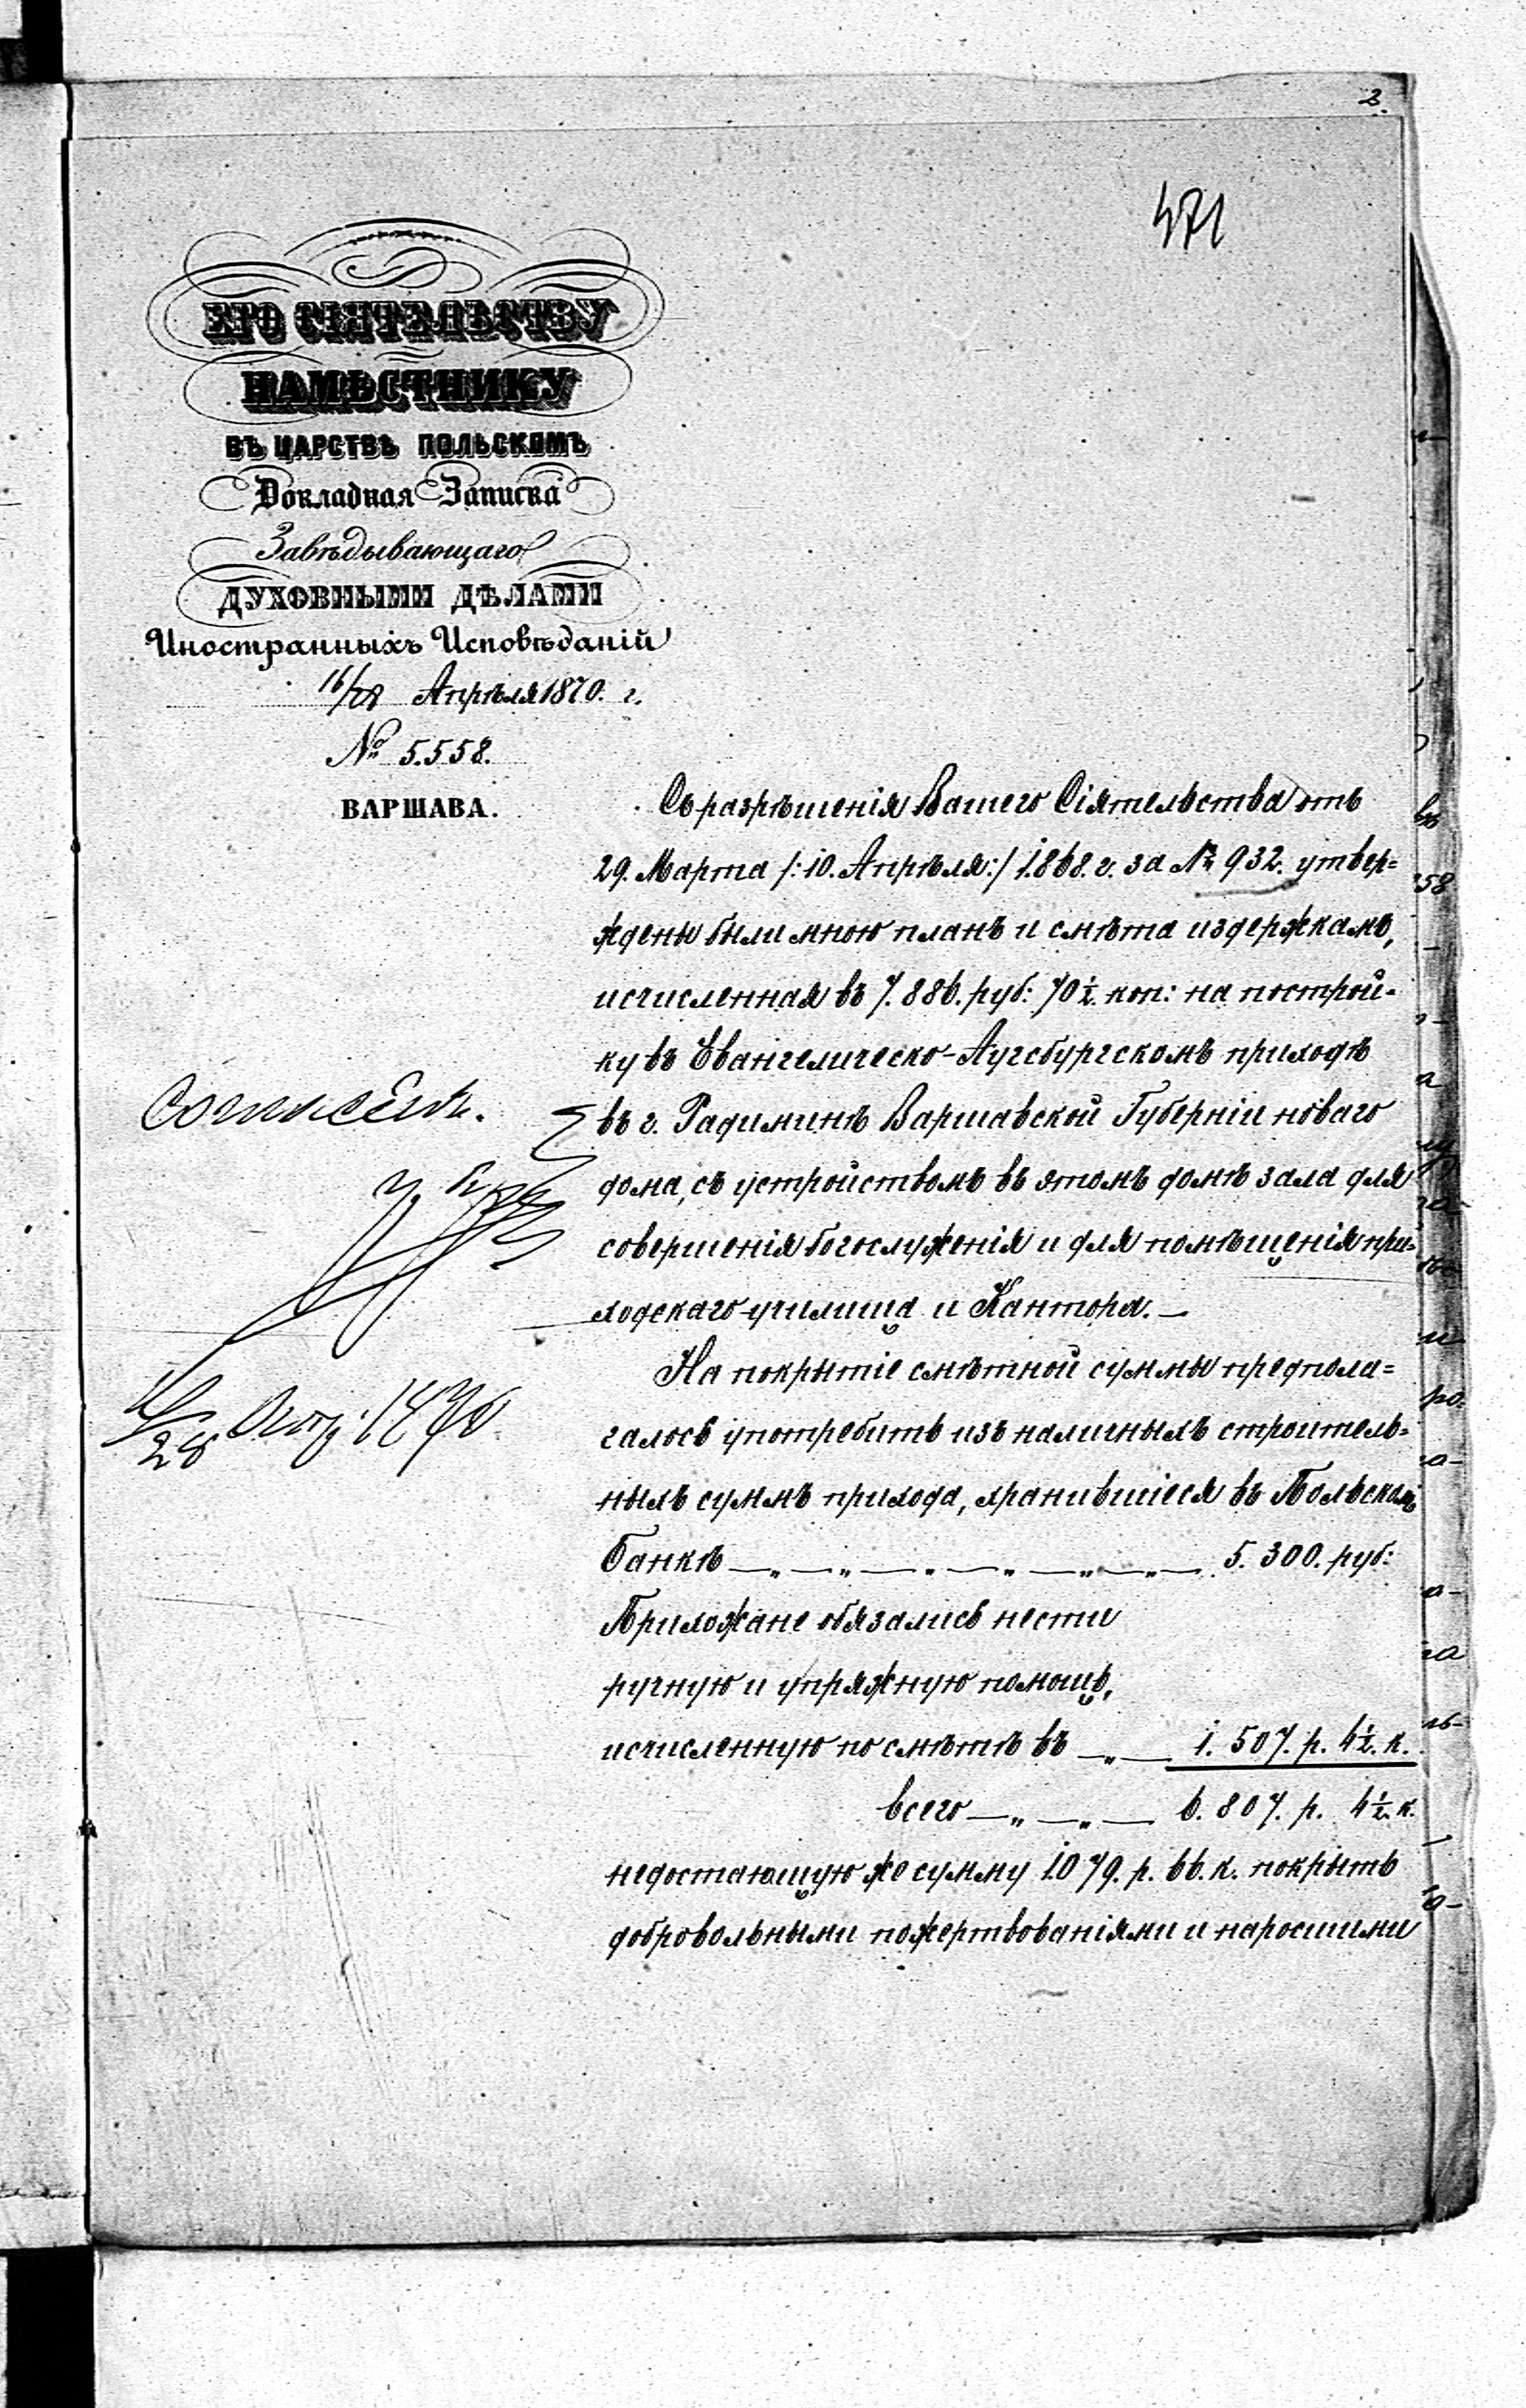 2.
471
ЕГО СІЯТЕЛЬСТВУ
НАМѢСТНИКУ
ВЪ ЦАРСТВѢ ПОЛЬСКОМЪ
Докладная Записка
Завѣдывающаго
ДУХОВНЫМИ ДѢЛАМИ
Иностранныхъ Исповѣданій
16/28 Апрѣля 1870. г.
№ 5.558.
ВАРШАВА.
Съ разрѣшенія Вашего Сіятельства отъ
29. Марта /:10. Апрѣля:/ 1868. г. за № 932. утвер=
ждены были мною планъ и смѣта издержкамъ,
исчисленная въ 7.886. руб: 70 ½. коп: на построй-
ку въ Евангелическо-Аугсбургскомъ приходѣ
въ г. Радиминѣ Варшавской Губерніи новаго
дома, съ устройствомъ въ этомъ домѣ зала для
совершенія богослуженія и для помѣщенія при=
ходскаго училища и Кантора. —
На покрытіе смѣтной суммы предпола=
галось употребить изъ наличныхъ строитель=
ныхъ суммъ прихода, хранившіеся въ Польскомъ
Банкѣ — „ — „ — „ — „ — „ — „ — 5.300. руб:
Прихожане обязались нести
ручную и упряжную помощь,
исчисленную по смѣтѣ въ — „ — 1.507. р. 4 ½. к.
всего — „ — „ — 6.807. р. 4 ½. к.
недостающую же сумму 1.079. р. 66. к. покрыть
добровольными пожертвованіями и наросшими
Согласенъ.
28 1870